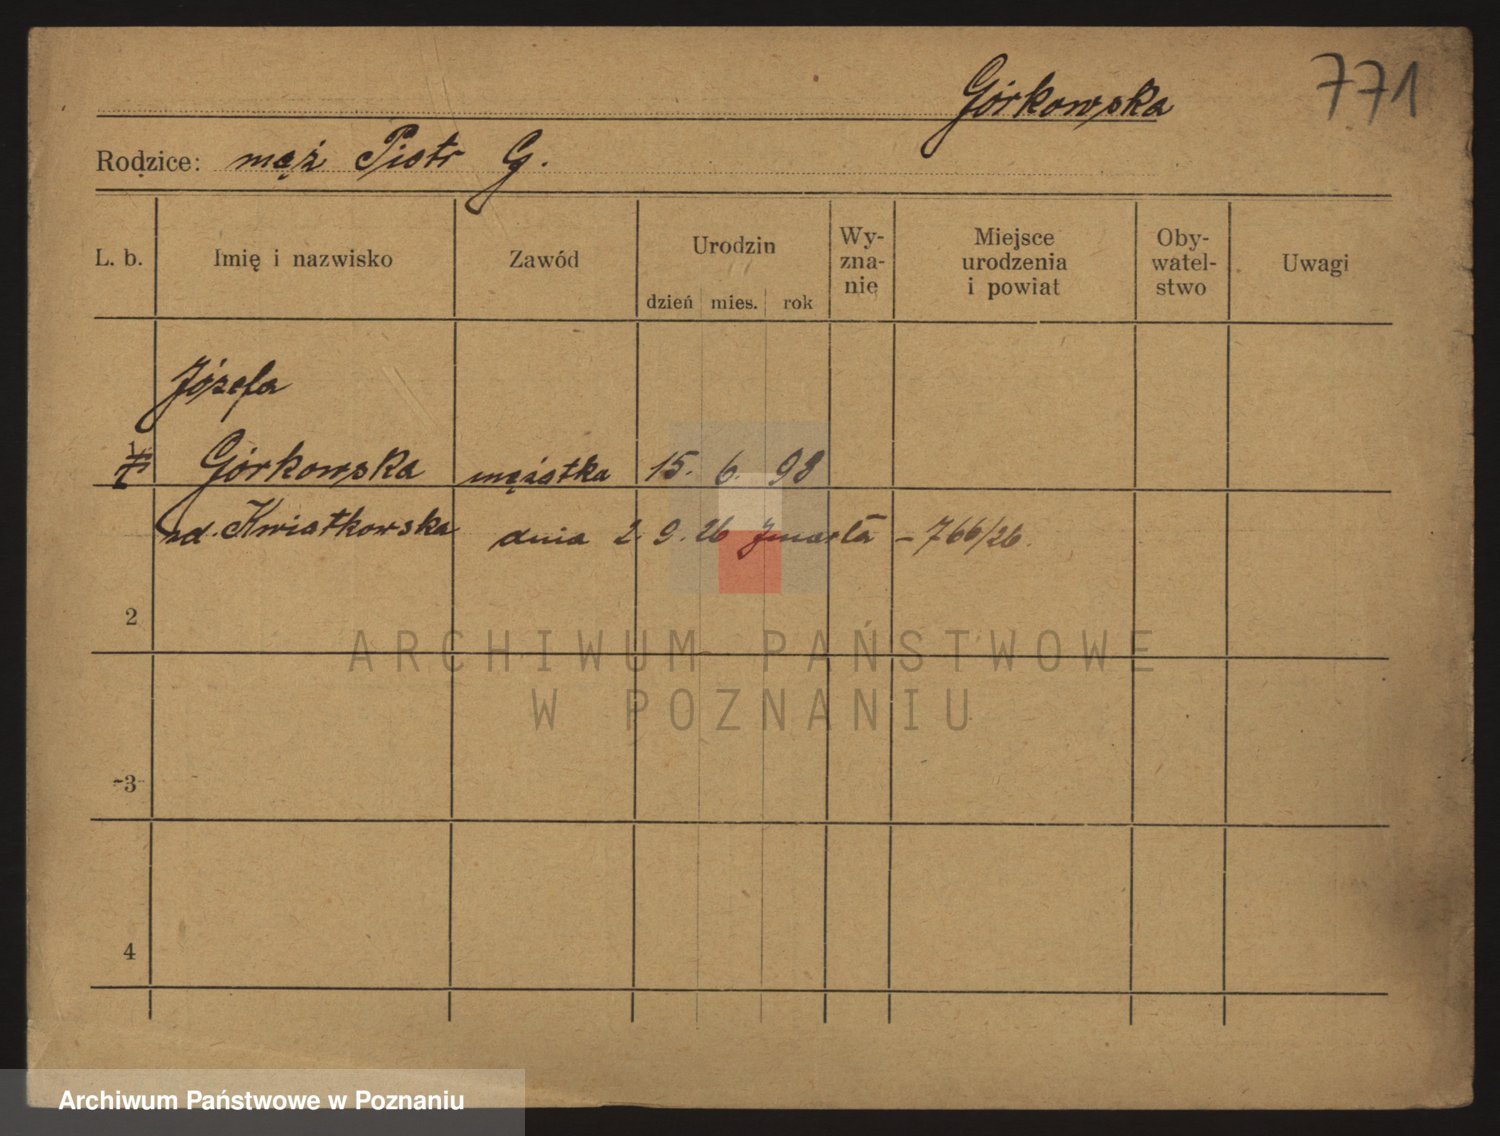 Górkowska
771
Rodzice: mąż Piotr G.
L. b. Imię i nazwisko Zawód Urodzin Wy-zna-nie Miejsce urodzenia i powiat Oby-watel-stwo Uwagi
dzień mies. rok
Józefa
1 Górkowska mężatka 15. 6. 98
zd. Kwiatkowska dnia 2. 9. 26 zmarła – 766/26.
2
3
4
ARCHIWUM PAŃSTWOWE
W POZNANIU
Archiwum Państwowe w Poznaniu